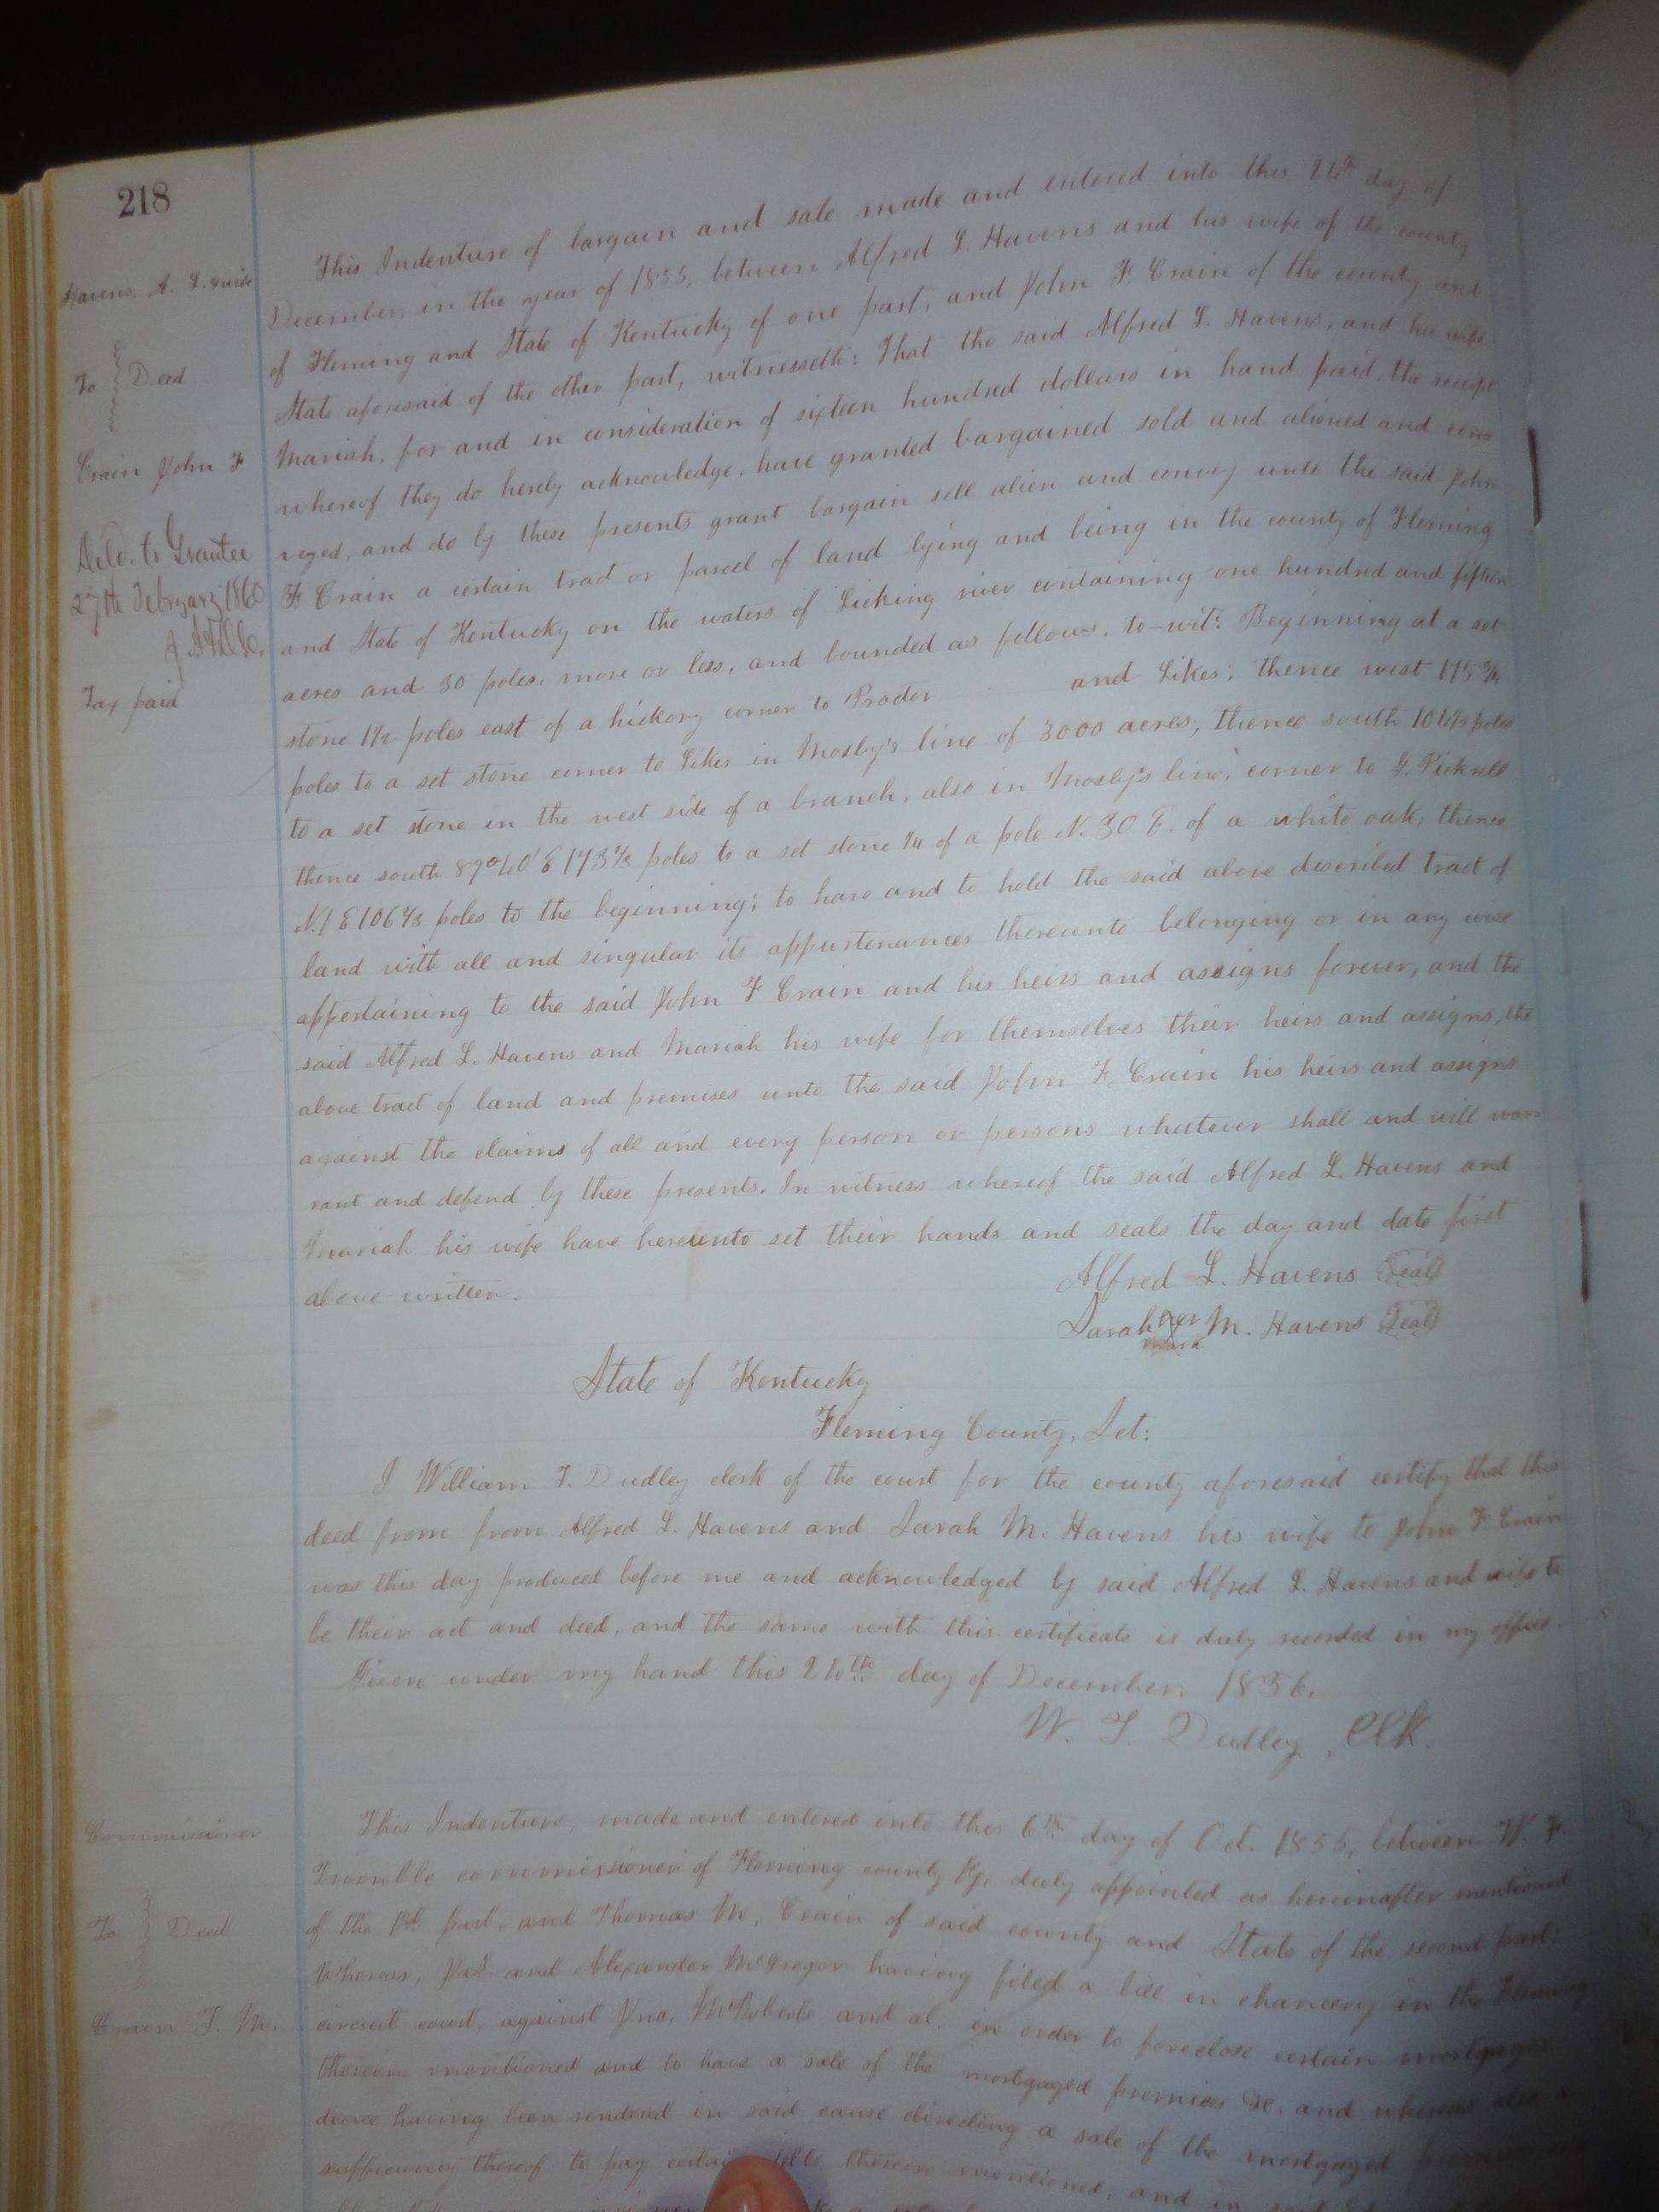 218
Havens, A. L. & wife
To Deed
Crain John F
Deld. to Grantee
27th February 1860
Tax paid
This Indenture of bargain and sale made and entered into this day of
December, in the year of 1855, between Alfred L. Havens and his wife of the county
of Fleming and State of Kentucky of one part, and John F. Crain of the county and
State aforesaid of the other part, witnesseth: That the said Alfred L. Havens, and his wife
Mariah, for and in consideration of sixteen hundred dollars in hand paid, the receipt
whereof they do herely acknowledge, have granted bargained sold and aliened and con=
veyed, and do by these presents grant bargain sell alien and convey unto the said John
F. Crain a certain tract or parcel of land lying and being in the county of Fleming
and State of Kentucky on the waters of Licking river containing one hundred and fifteen
acres and 30 poles, more or less, and bounded as follows, to-wit: Beginning at a set
stone 1½ poles east of a hickory corner to Proctor and Likes; thence west 175¾
poles to a set stone corner to Likes in Mosby's line of 3000 acres; thence south poles
to a set stone in the west side of a branch, also in Mosby's line, corner to G. Picknell
thence south 89°40' E poles to a set stone ¼ of a pole N. 30 E. of a white oak; thence
N. 1 E poles to the beginning; to have and to hold the said above described tract of
land with all and singular its appurtenances thereunto belonging or in any wise
appertaining to the said John F Crain and his heirs and assigns forever, and the
said Alfred L. Havens and Mariah his wife for themselves their heirs and assigns, the
above tract of land and premises unto the said John F. Crain his heirs and assigns
against the claims of all and every person or persons whatever shall and will war=
rant and defend by these presents. In witness whereof the said Alfred L. Havens and
Mariah his wife have hereunto set their hands and seals the day and date first
above written.
Alfred L. Havens Seal
Sarah her X mark M. Havens Seal
State of Kentucky
Fleming County, Sct:
I William T. Dudley clerk of the court for the county aforesaid certify that this
deed from from Alfred L. Havens and Sarah M. Havens his wife to John F Crain
was this day produced before me and acknowledged by said Alfred L. Havens and wife to
be their act and deed, and the same with this certificate is duly recorded in my office.
Given under my hand this day of December, 1856.
W. T. Dudley, Clk.
Commissioner
To Deed
Crain T. M.
This Indenture, made and entered into this 6th day of Oct. 1855, between W. F.
Trumble commissioner of Fleming county Ky, duly appointed as hereinafter mentioned
of the 1st part, and Thomas M. Crain of said county and State of the second part:
Whereas, and Alexander McGregor having filed a bill in chancery in the Fleming
circuit court, against Jno. McRoberts and al. in order to foreclose certain mortgages
therein mentioned and to have a sale of the mortgaged premises &c. and whereas also a
decree having been rendered in said cause directing a sale of the mortgaged premises
sufficiency thereof to pay certain debts therein mentioned, and in